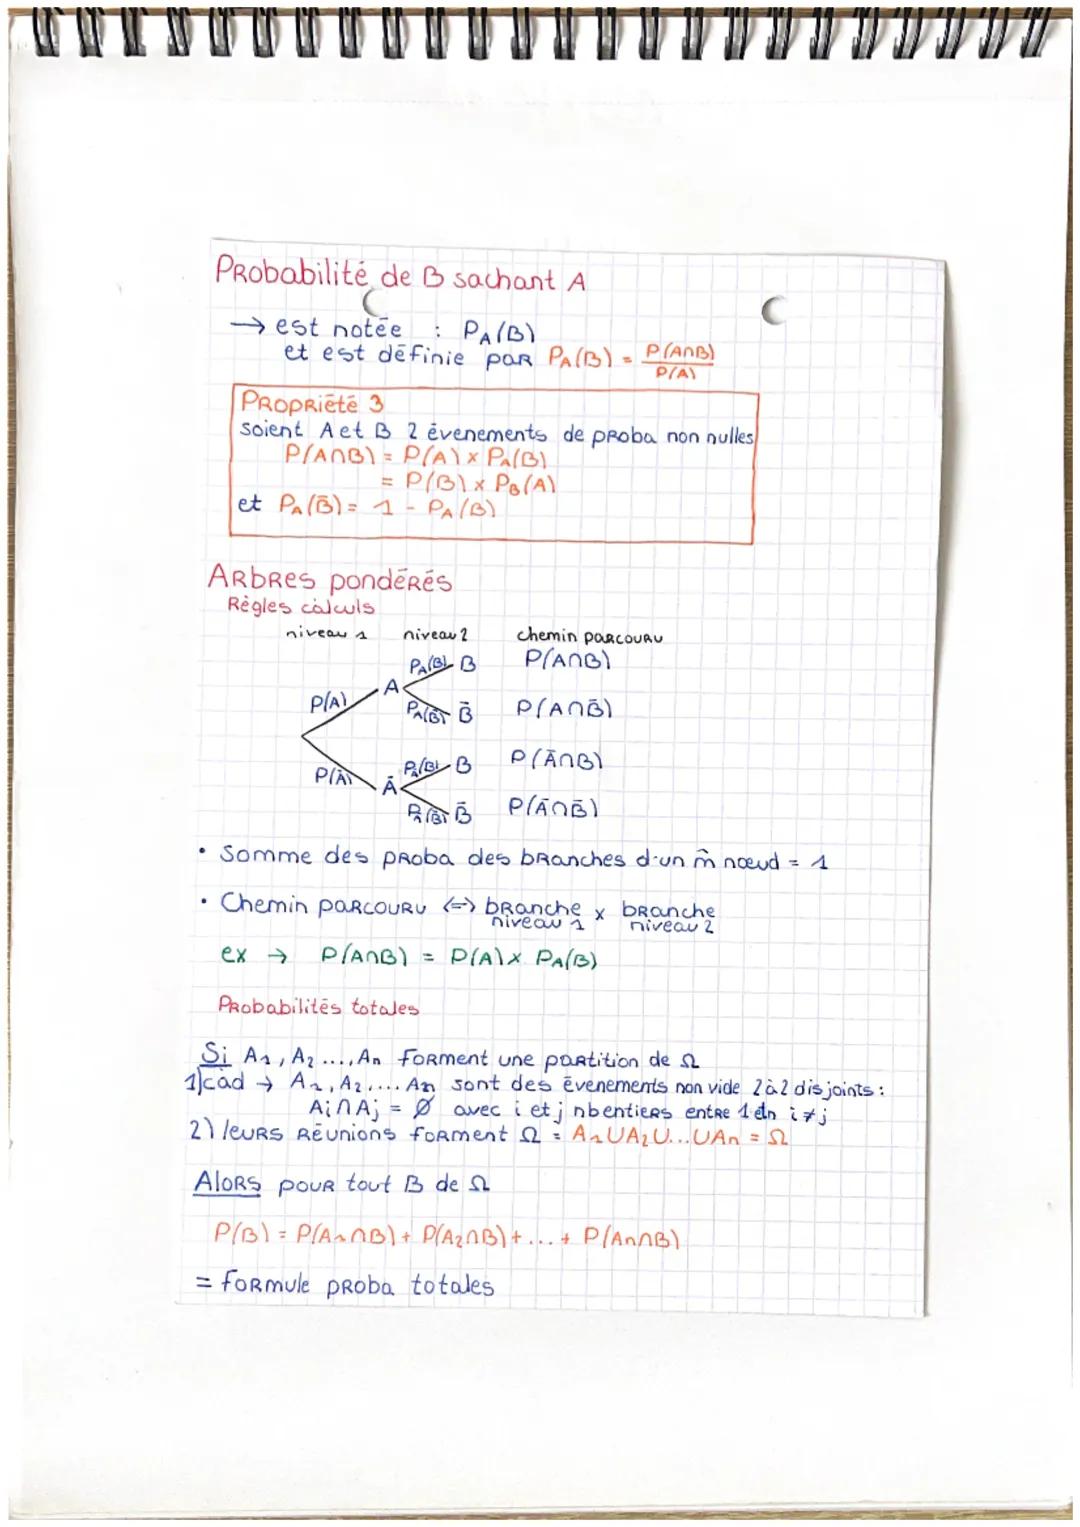 Probabilité de B sachant A
→ est notée : PA(B)
et est définie par PA(B) = P(A∩B)/P(A)
Propriété 3
soient A et B 2 évenements de proba non nulles
P(A∩B) = P(A) x PA(B)
= P(B) x PB(A)
et PA(B̄) = 1 - PA(B)
Arbres pondérés
Règles calculs
niveau 1 niveau 2 chemin parcouru
PA(B) B P(A∩B)
P(A) A
PA(B̄) B̄ P(A∩B̄)
PĀ(B) B P(Ā∩B)
P(Ā) Ā
PĀ(B̄) B̄ P(Ā∩B̄)
• Somme des proba des branches d'un m̂ nœud = 1
• Chemin parcouru ⇔ branche niveau 1 x branche niveau 2
ex → P(A∩B) = P(A) x PA(B)
Probabilités totales
Si A1, A2 ..., An forment une partition de Ω
1) càd → A1, A2, ... An sont des évenements non vide 2 à 2 disjoints :
Ai∩Aj = Ø avec i et j nb entiers entre 1 et n i ≠ j
2) leurs réunions forment Ω = A1∪A2∪...∪An = Ω
Alors pour tout B de Ω
P(B) = P(A1∩B) + P(A2∩B) + ... + P(An∩B)
= formule proba totales